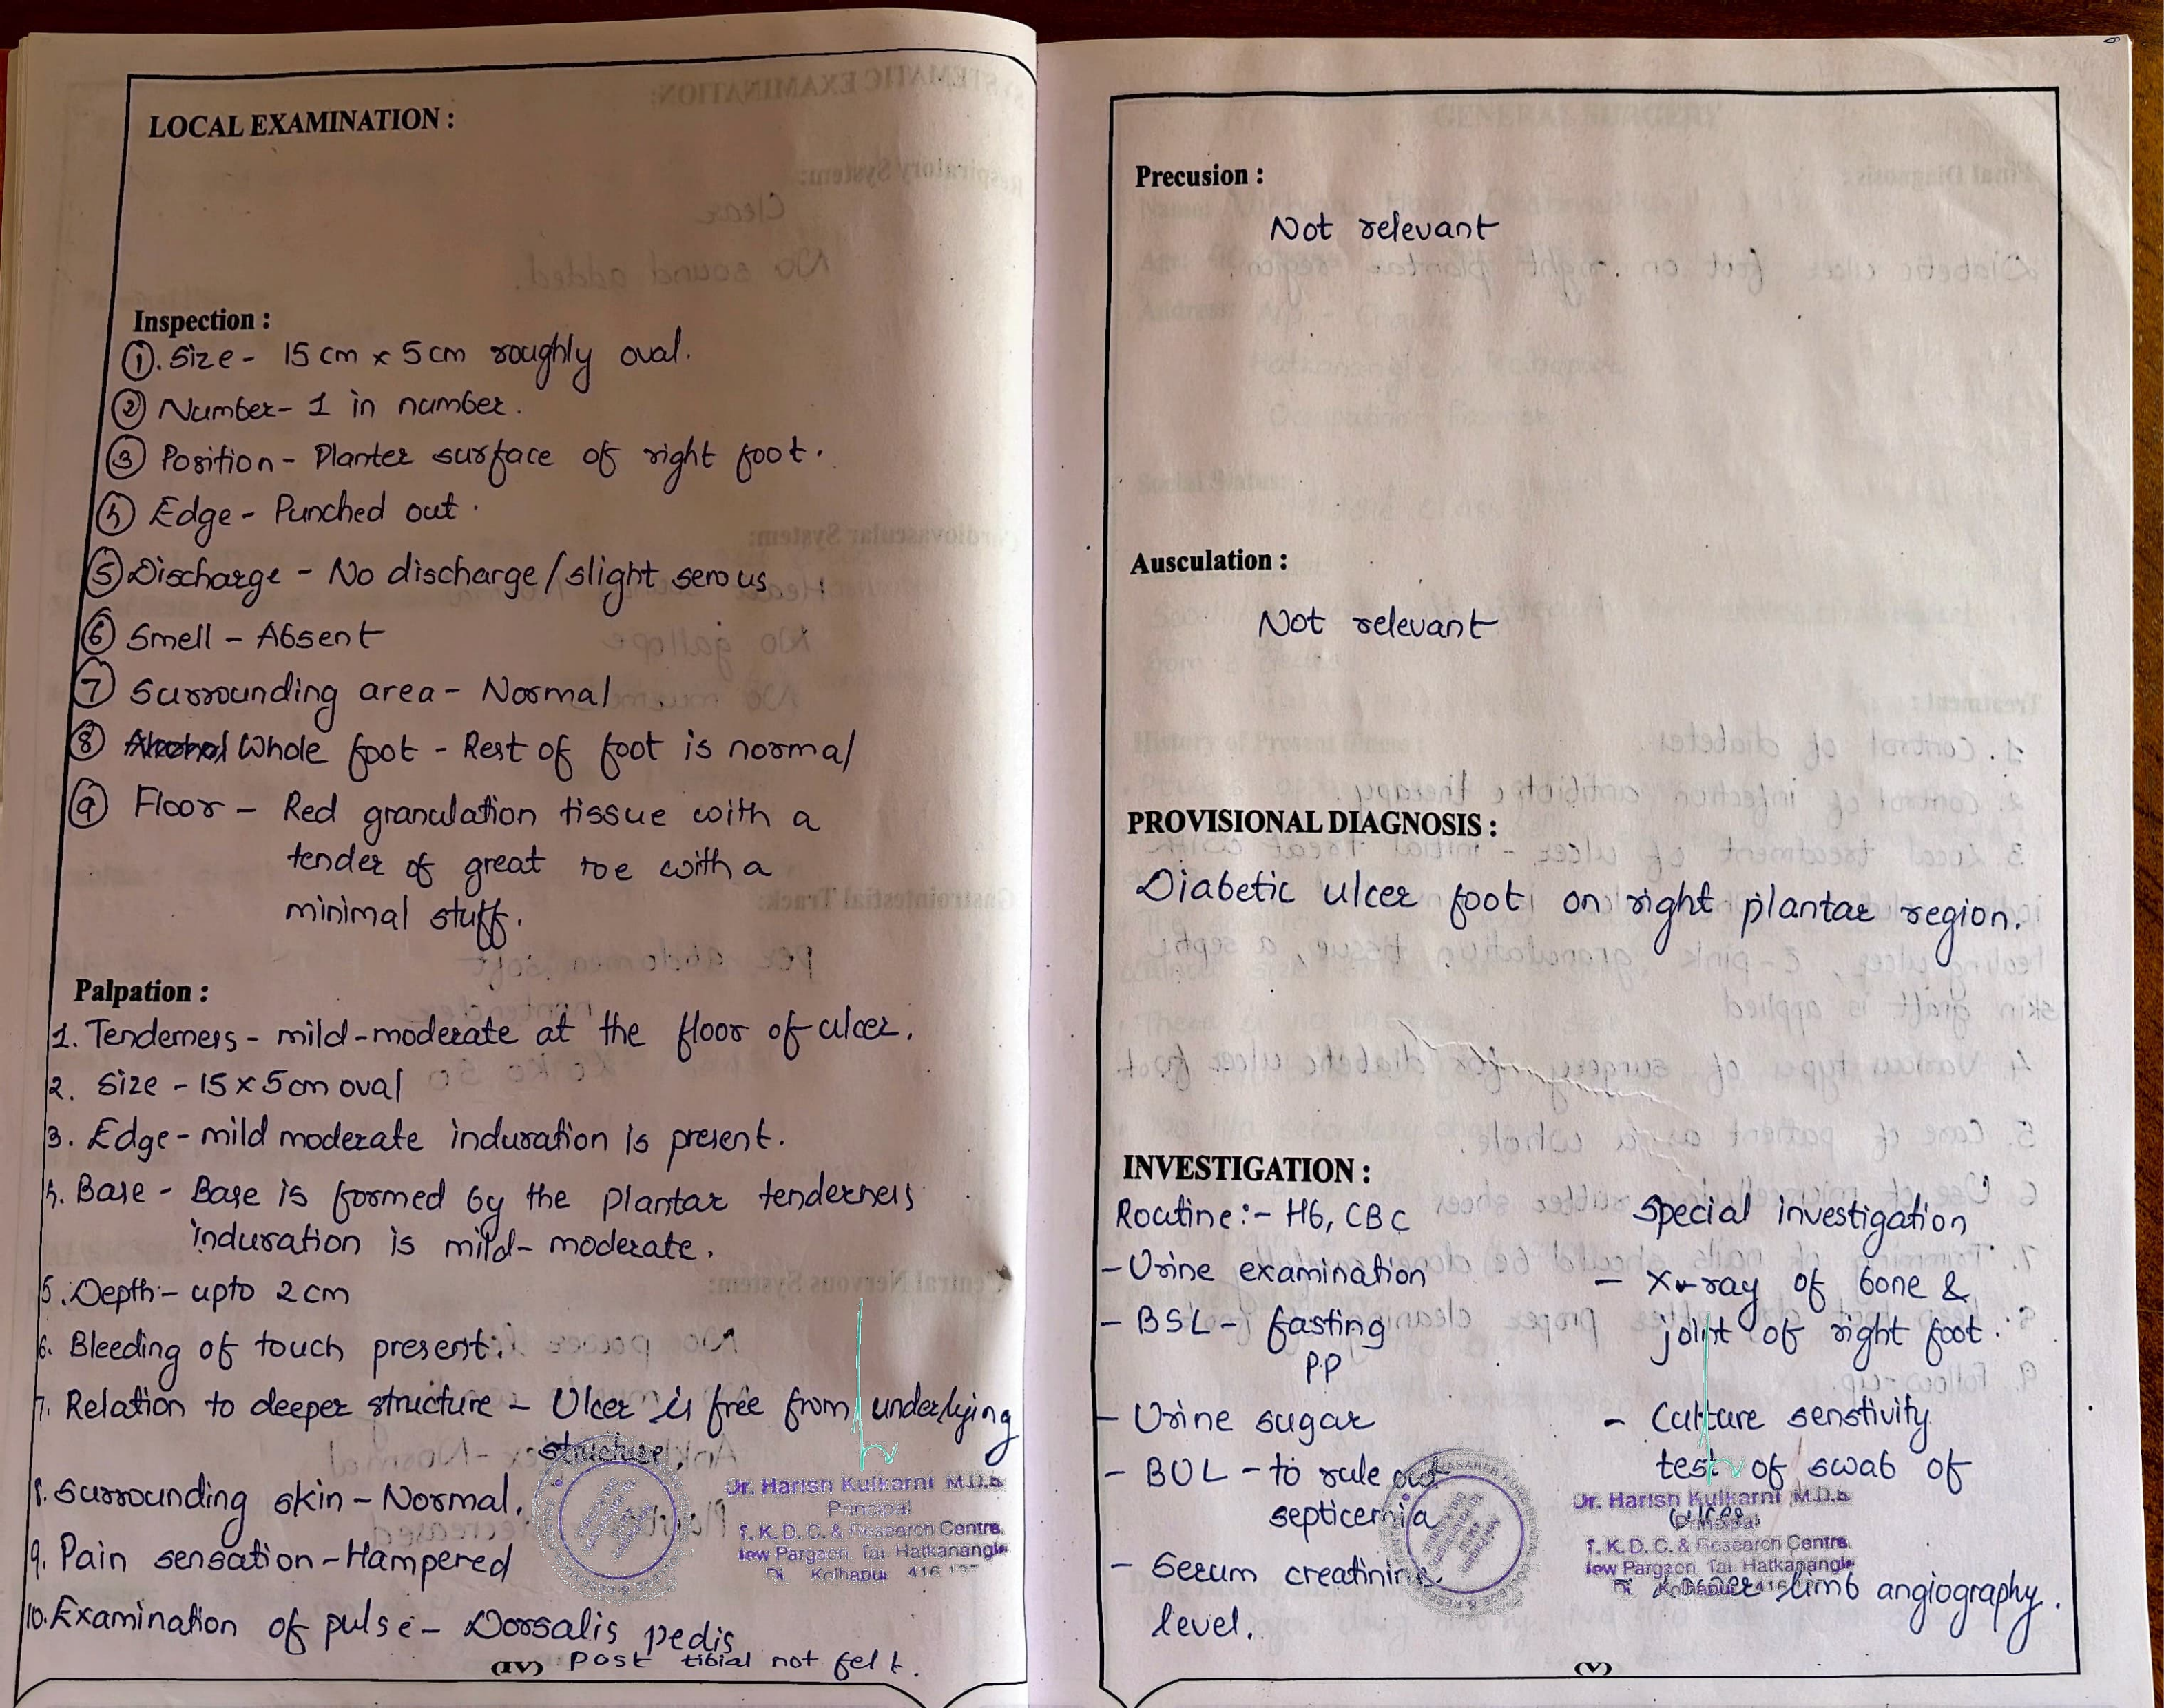 LOCAL EXAMINATION :
Inspection :
①. Size - 15 cm x 5 cm roughly oval.
② Number - 1 in number.
③ Position - Planter surface of right foot.
④ Edge - Punched out.
⑤ Discharge - No discharge/slight serous
⑥ Smell - Absent
⑦ Surrounding area - Normal
⑧ Whole foot - Rest of foot is normal
⑨ Floor - Red granulation tissue with a
tender of great toe with a
minimal stuff.
Palpation :
1. Tenderness - mild-moderate at the floor of ulcer.
2. Size - 15 x 5 cm oval
3. Edge - mild moderate induration is present.
4. Base - Base is formed by the plantar tenderness
induration is mild-moderate.
5. Depth - upto 2 cm
6. Bleeding of touch present.
7. Relation to deeper structure - Ulcer is free from underlying
structure.
8. Surrounding skin - Normal.
9. Pain sensation - Hampered
10. Examination of pulse - Dorsalis pedis
post tibial not felt.
(IV)
Dr. Harish Kulkarni M.D.S
Principal
K. D. C. & Research Centre,
New Pargaon, Tal- Hatkanangle
Kolhapur 416
Precusion :
Not relevant
Ausculation :
Not relevant
PROVISIONAL DIAGNOSIS :
Diabetic ulcer foot on right plantar region.
INVESTIGATION :
Routine :- Hb, CBC
- Urine examination
- BSL - fasting
PP
- Urine sugar
- BUL - to rule out
septicemia
- Serum creatinine
level.
Special investigation
- X-ray of bone &
joint of right foot.
- Culture senstivity
test of swab of
ulcer
- Lower limb angiography.
Dr. Harish Kulkarni M.D.S
Principal
K. D. C. & Research Centre,
New Pargaon, Tal- Hatkanangle
Kolhapur 416
(V)